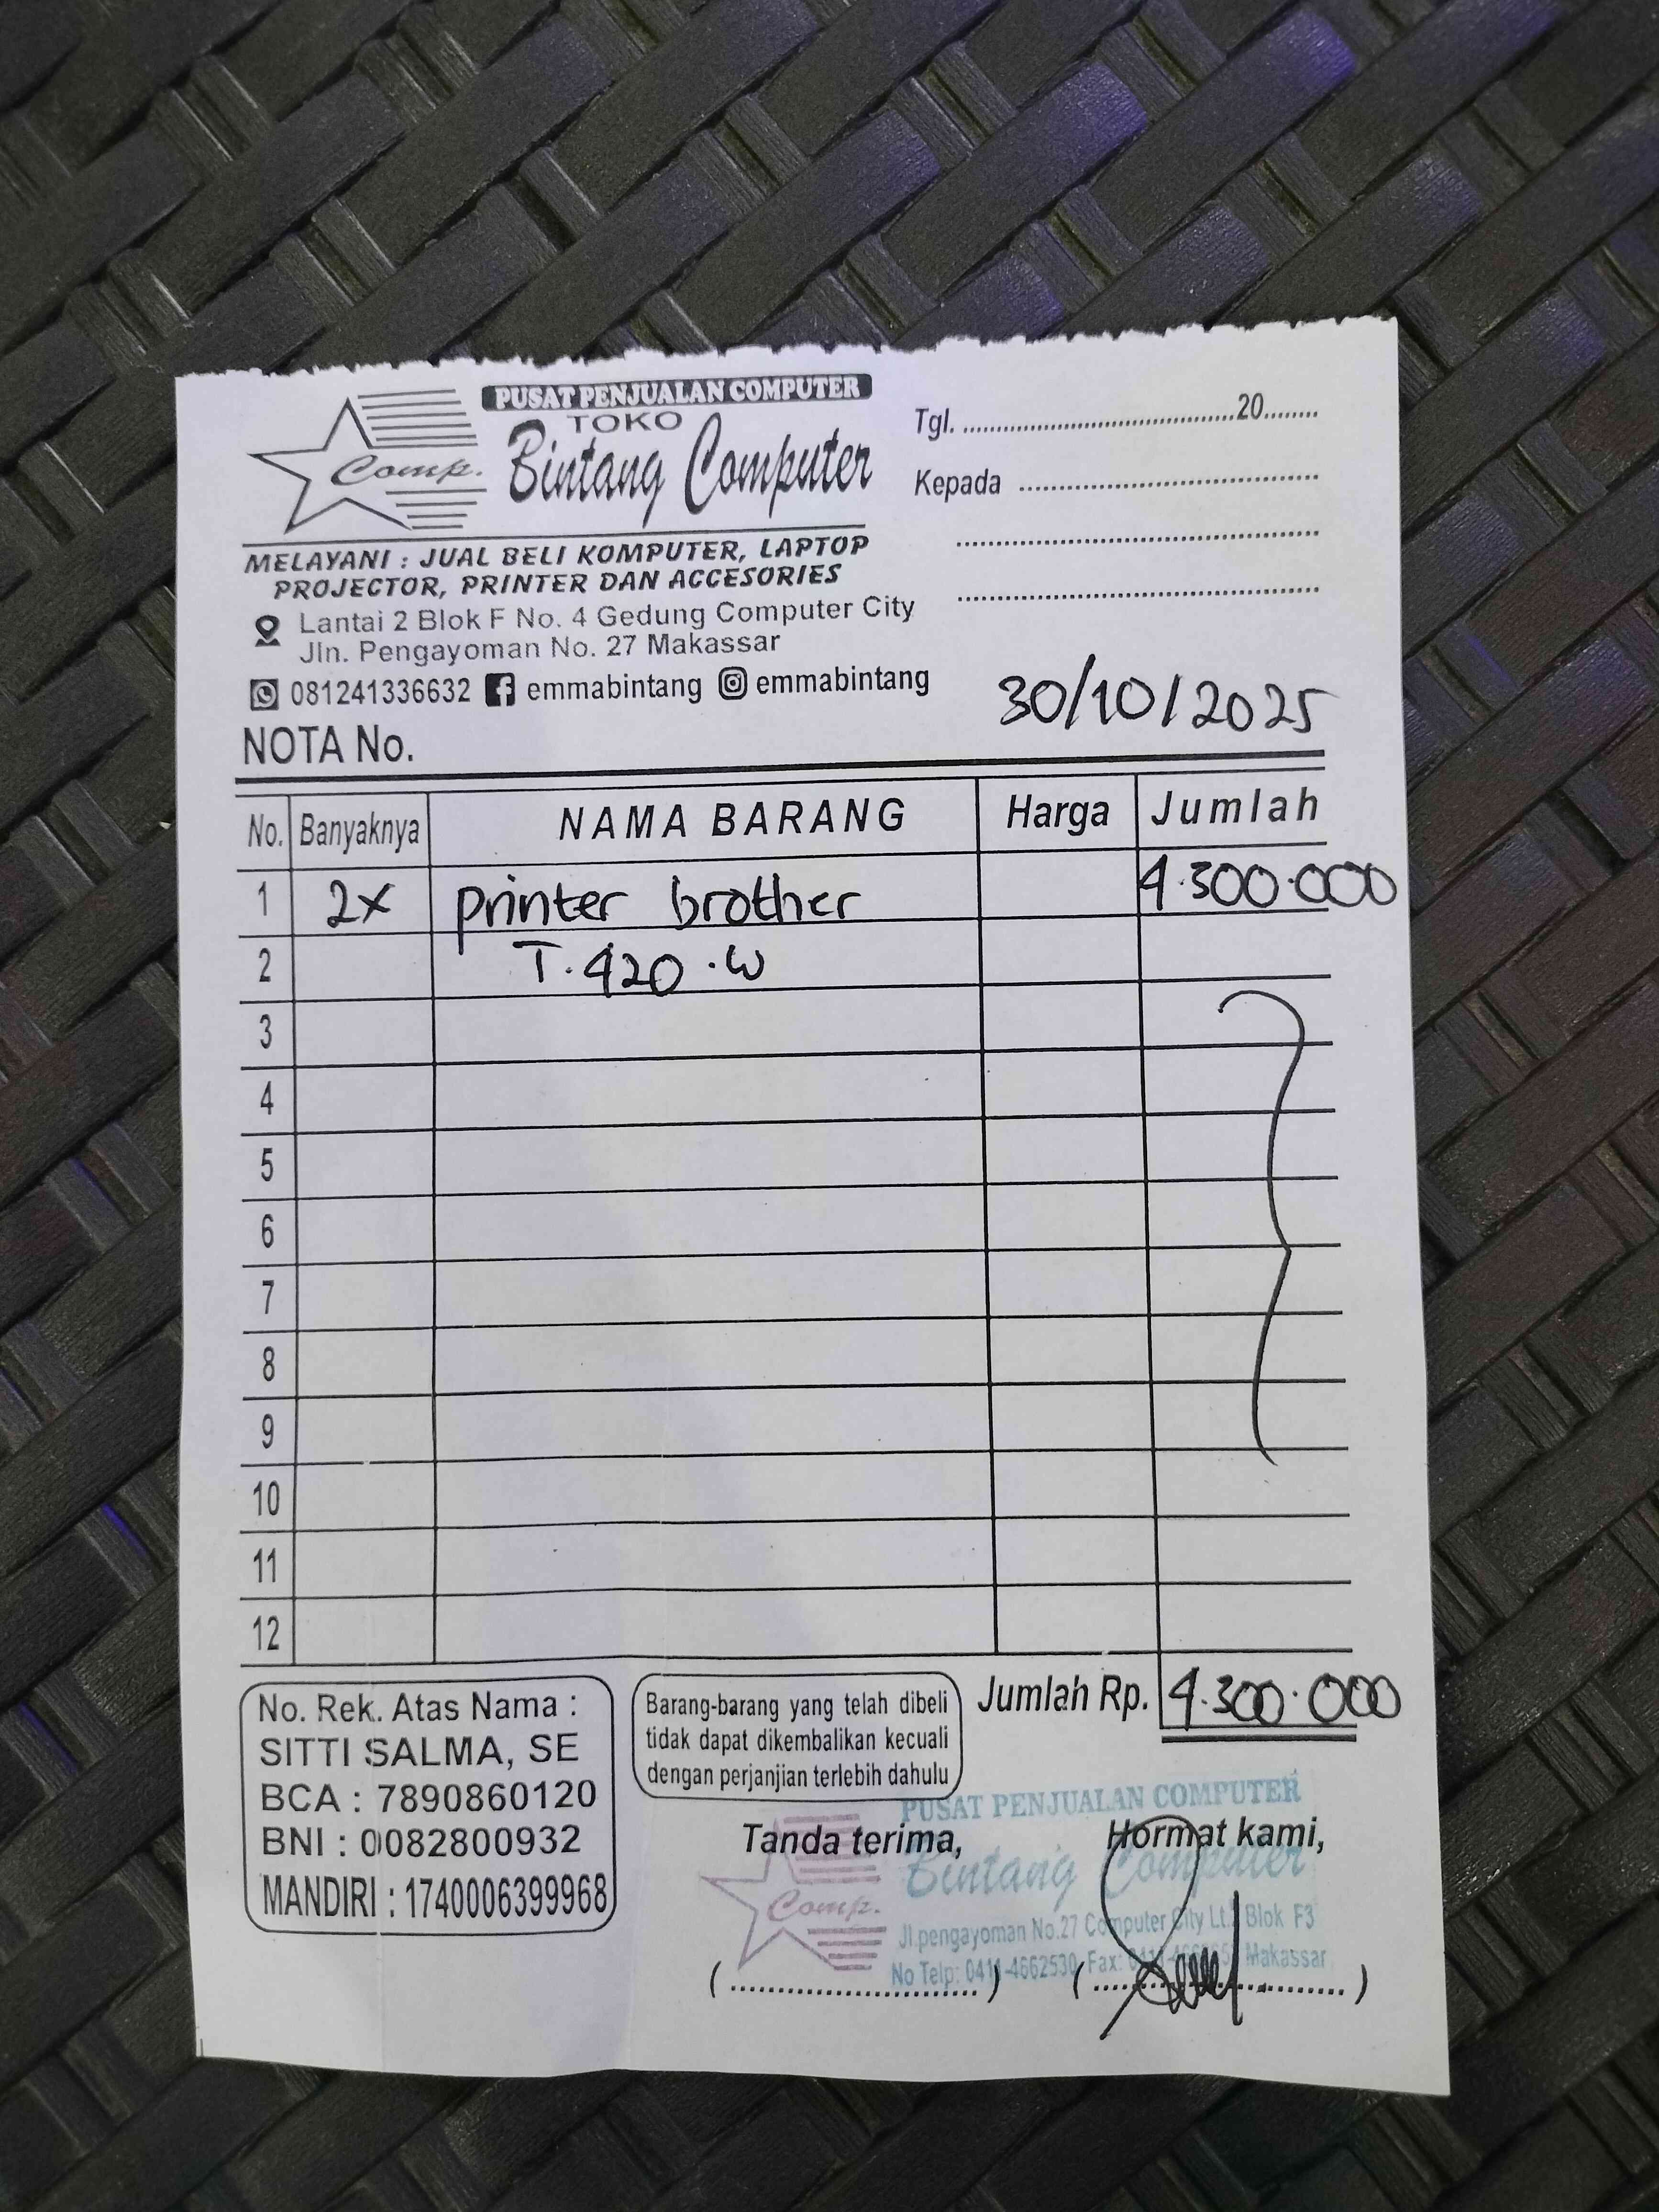 PUSAT PENJUALAN COMPUTER
TOKO
Comp.
Bintang Computer
MELAYANI : JUAL BELI KOMPUTER, LAPTOP
PROJECTOR, PRINTER DAN ACCESORIES
Lantai 2 Blok F No. 4 Gedung Computer City
Jln. Pengayoman No. 27 Makassar
081241336632 emmabintang emmabintang
Tgl. ........................................20........
Kepada ............................................
30/10/2025
NOTA No.
No. Banyaknya NAMA BARANG Harga Jumlah
1 2x printer brother 4.300.000
2 T.420.W
3
4
5
6
7
8
9
10
11
12
Jumlah Rp. 4.300.000
No. Rek. Atas Nama :
SITTI SALMA, SE
BCA : 7890860120
BNI : 0082800932
MANDIRI : 1740006399968
Barang-barang yang telah dibeli
tidak dapat dikembalikan kecuali
dengan perjanjian terlebih dahulu
Tanda terima,
Hormat kami,
PUSAT PENJUALAN COMPUTER
Comp.
Bintang Computer
Jl.pengayoman No.27 Computer City Lt. Blok F3
No Telp: 0411-4662530, Fax: Makassar